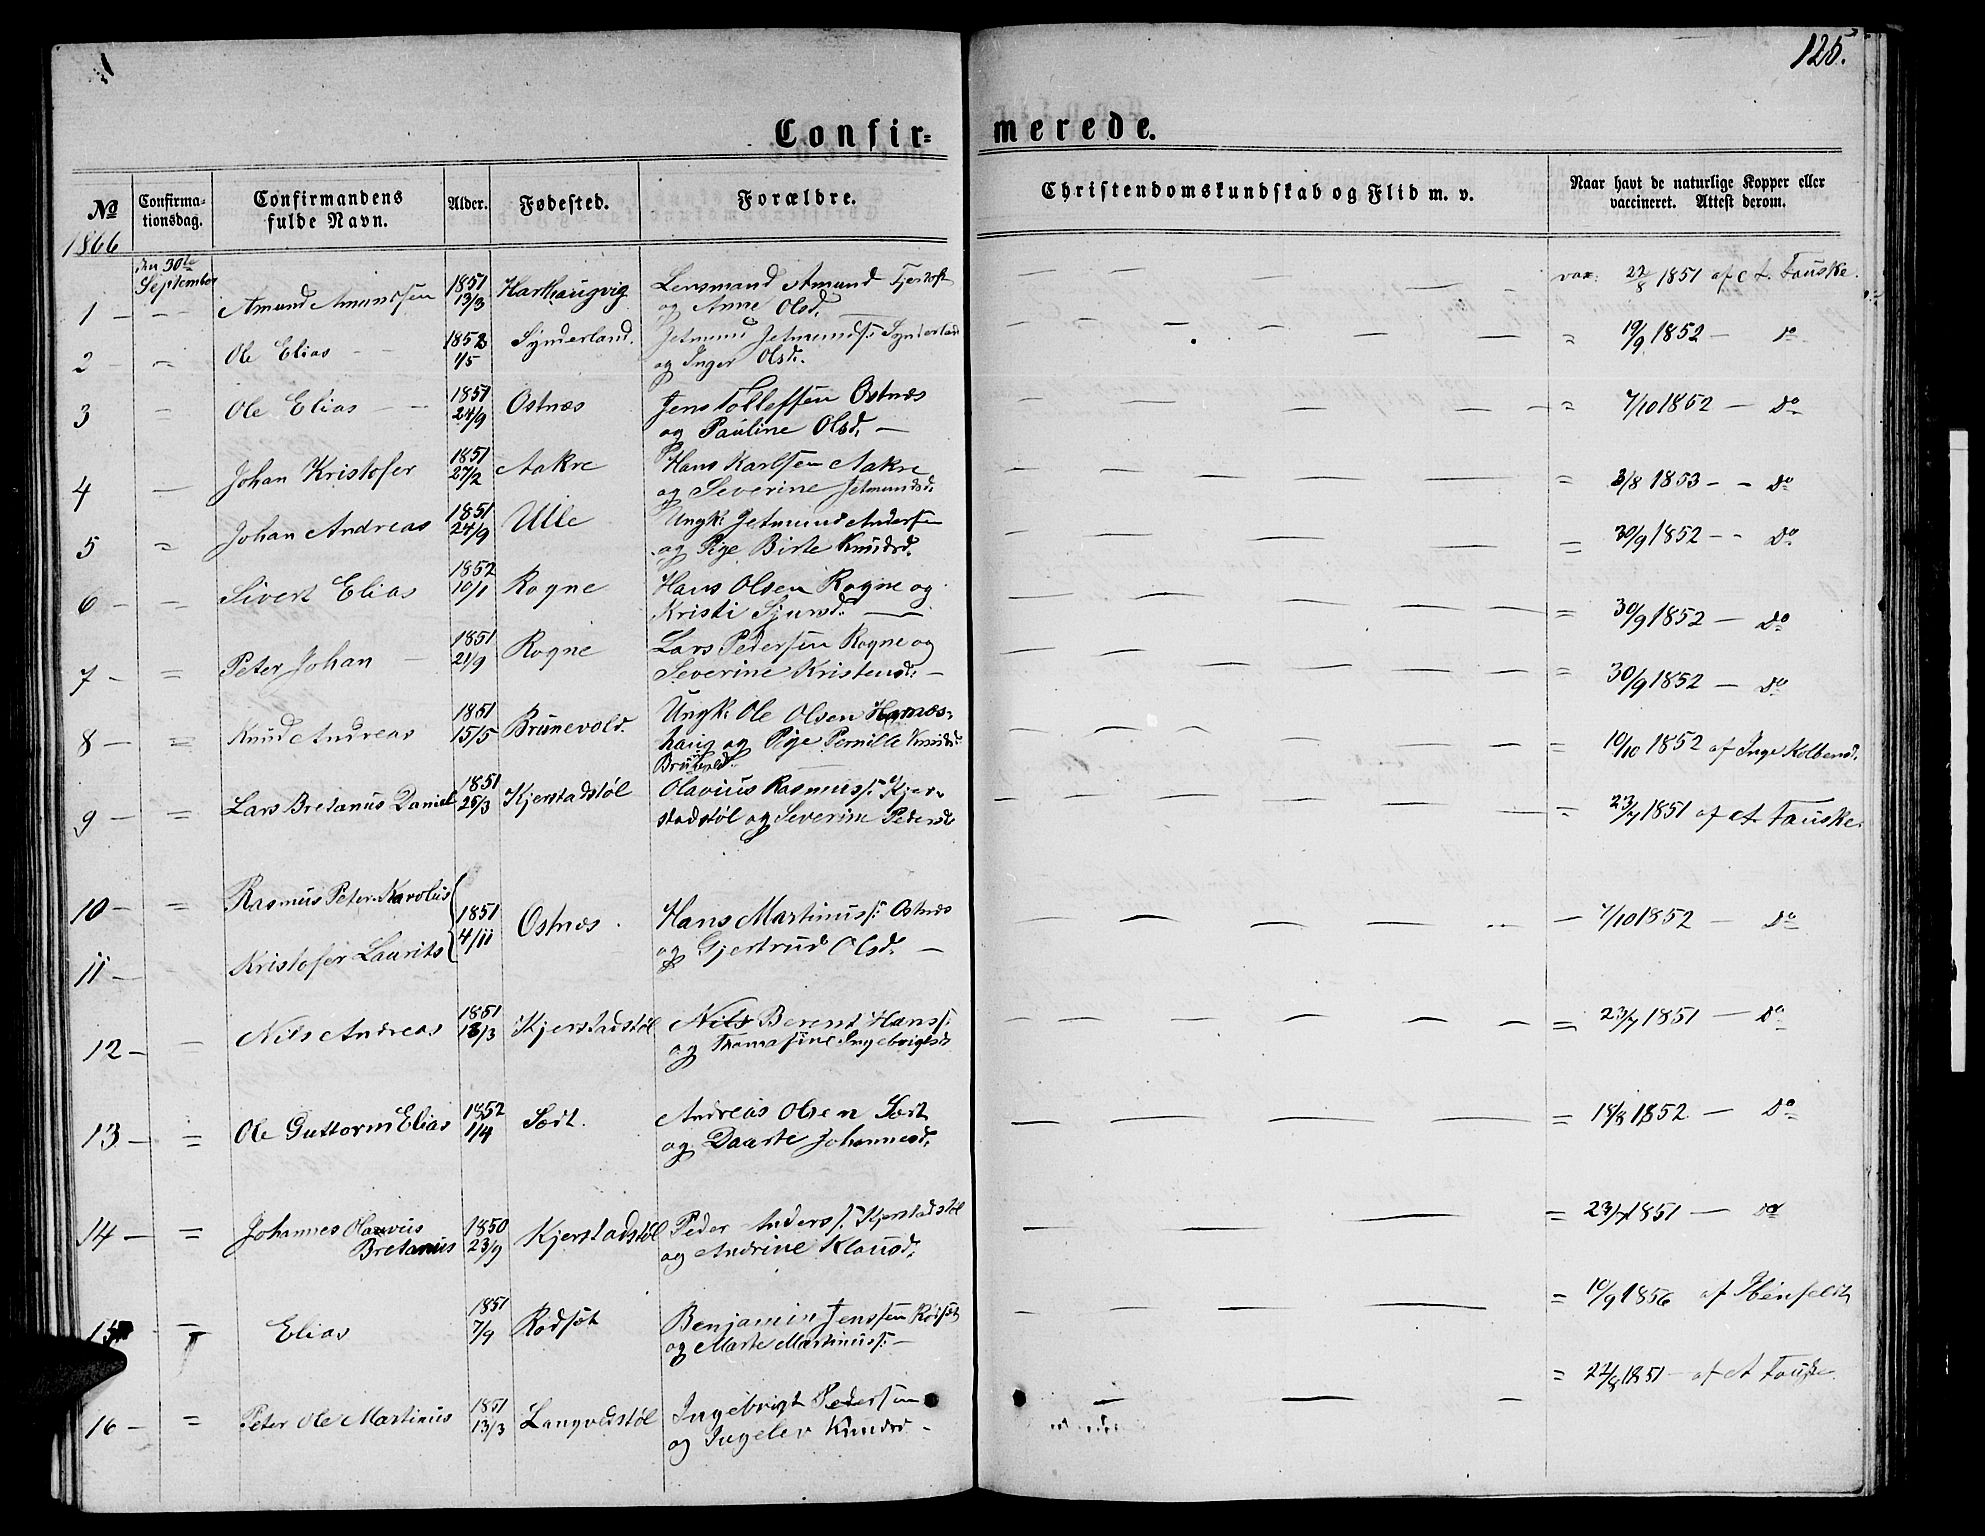 125.
Confir=
merede.
№
Confirma=
tionsdag.
Confirmandens
fulde Navn.
Alder.
Fødested.
Forældre.
Christendomskundskab og Flid m. v.
Naar havt de naturlige Kopper eller
vaccineret. Attest derom.
1866
den 30te
September
1 — Amund Amundsen 1851 13/3 Harhaugvig Lensmand Amund Fjertoft
og Anne Olsd. vax: 22/8 1851 af A. Fauske.
2 — Ole Elias 1852 1/5 Synderland. Jetmund Jetmunds: Synderland
og Inger Olsd. = 19/9 1852 — do
3 Ole Elias 1851 24/9 Ostnæs Jens Tolleffsen Ostnæs
og Pauline Olsd. — = 7/10 1852 — do
4 Johan Kristofer 1851 27/2 Aakre Hans Karlsen Aakre
og Severine Jetmundsd. = 3/8 1853 - - do
5 Johan Andreas 1851 24/9 Ulle Ungk: Jetmund Andersen
og Pige Birte Knudsd. = 30/9 1852 - - do
6 — = Sivert Elias 1852 10/1 Rogne Hans Olsen Rogne og
Kristi Sjursd. — = 30/9 1852 — do
7 — = Peter Johan — 1851 21/9 Rogne Lars Pedersen Rogne og
Severine Kristensd. — = 30/9 1852 — do
8 — = Knud Andreas 1851 15/5 Brunevold. Ungk: Ole Olsen Harnæs=
haug og Pige Pernille Knudsd.
= 10/10 1852 af Inge Kolbensd.
9 — = Lars Bretanus Daniel 1851 25/3 Kjerstadstøl Olavius Rasmuss: Kjer=
stadstøl og Severine Pedersd. = 23/7 1851 af A. Fauske.
10 — = Rasmus Peter Karolus
1851 4/11 Ostnæs. Hans Martinuss: Ostnæs
og Gjertrud Olsd. — — 7/10 1852 — do
11 — Kristofer Laurits
12 — = Nils Andreas 1851 18/3 Kjerstadstøl Nils Berent Hanss:
og Thomasine Ingebrigtsd. = 23/7 1851 — do
13 — = Ole Guttorm Elias 1852 1/4 Sæt. Andreas Olsen Sæt
og Daarte Johannesd. = 18/8 1852 — do
14 — = Johannes Olavius
Bretanus 1850 23/9 Kjerstadstøl Peder Anders: Kjerstadstøl
og Andrine Klausd. = 23/7 1851 — do
15 = Elias 1851 7/9 Rødsæt Benjamin Jenssen Rødsæt
og Marte Martinuss: — = 10/9 1856 af
16 — = Peter Ole Martinus 1851 13/3 Langvedstøl Ingebrigt Pedersen
og Ingelev Knudsd — = 22/8 1851 — af A Fauske.